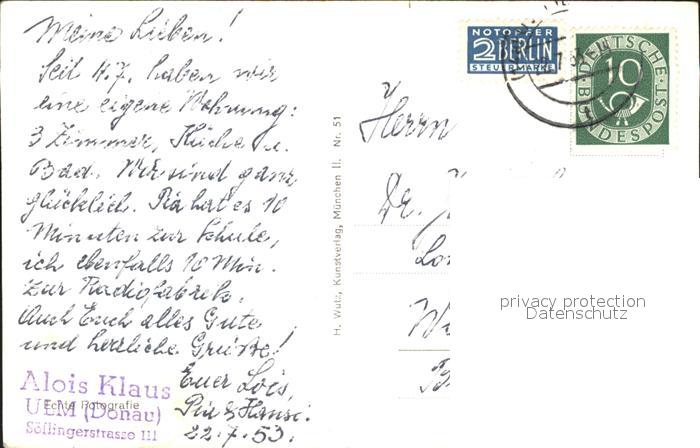 Meine Lieben!
Seit 4.7. haben wir
eine eigene Wohnung:
3 Zimmer, Küche u.
Bad. Wir sind ganz
glücklich. Pia hat es 10
Minuten zur Schule,
ich ebenfalls 10 Min.
zur Radiofabrik.
Auch Euch alles Gute
und herzliche Grüße!
Euer Lois,
Pia & Hansi.
22.7.53.
Alois Klaus
Echte Fotografie
ULM (Donau)
Söflingerstrasse 111
H. Wutz, Kunstverlag, München II. Nr. 51
NOTOPFER
2 BERLIN
STEUERMARKE
DEUTSCHE
10
BUNDESPOST
Herrn
Dr.
privacy protection
Datenschutz